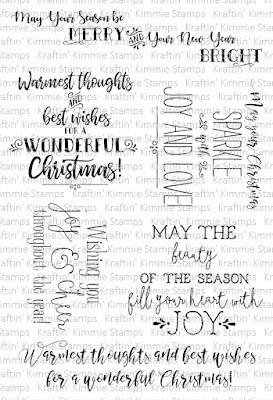 May Your Season be
MERRY AND Your New Year
BRIGHT
Warmest thoughts
AND
best wishes
FOR A
WONDERFUL
Christmas!
May your Christmas
SPARKLE
with
JOY AND LOVE!
Wishing you
Joy & Cheer
throughout the year!
MAY THE
beauty
OF THE SEASON
fill your heart with
JOY
Warmest thoughts and best wishes
for a wonderful Christmas!
Kraftin' Kimmie Stamps